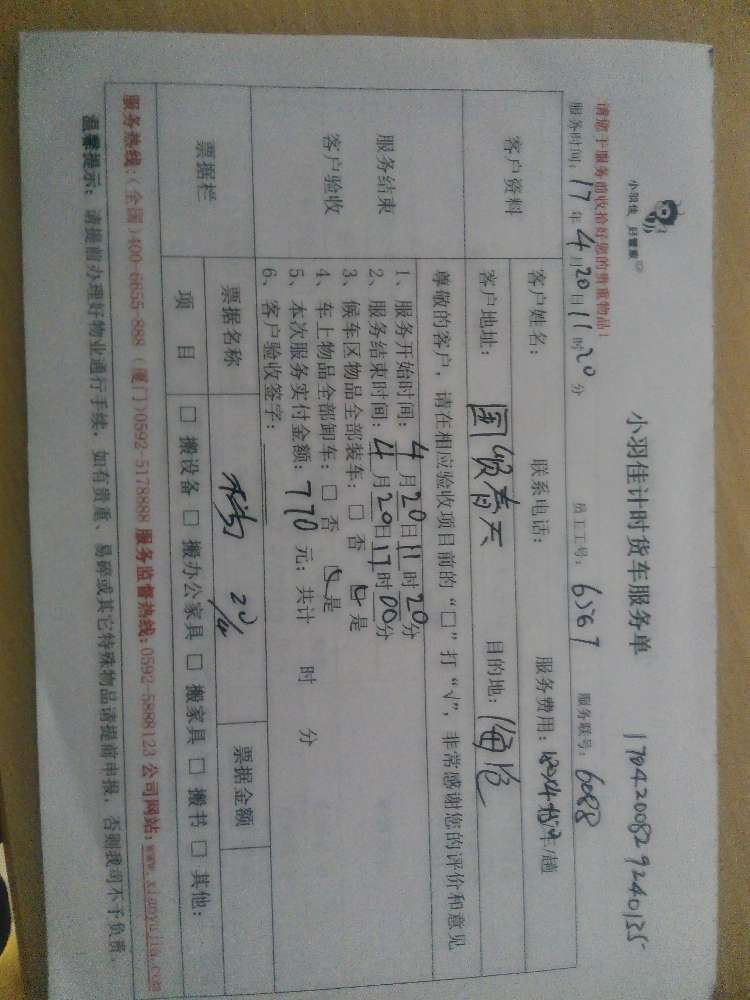 小羽佳 好管家
小羽佳计时货车服务单
1704200829240135
请您于服务前收拾好您的贵重物品！
服务时间：17年4月20日11时20分 员工工号：6567 服务联号：6088
客户资料
客户姓名： 联系电话： 服务费用： 车/趟
客户地址：国贸春天 目的地：海沧
服务结束
客户验收
尊敬的客户，请在相应验收项目前的“□”打“√”，非常感谢您的评价和意见
1、服务开始时间：4月20日11时20分
2、服务结束时间：4月20日17时00分
3、候车区物品全部装车：□否 □是
4、车上物品全部卸车：□否 □是
5、本次服务实付金额：770元；共计 时 分
6、客户验收签字：
票据栏
票据名称 20/4 票据金额
项目 □搬设备 □搬办公家具 □搬家具 □搬书 □其他：
服务热线：（全国）400-6655-888（厦门）0592-5178888 服务监督热线：0592-5888123 公司网站：www.xiaoyujia.com
温馨提示：请提前办理好物业通行手续，如有贵重、易碎或其它特殊物品请提前申报，否则我司不予负责